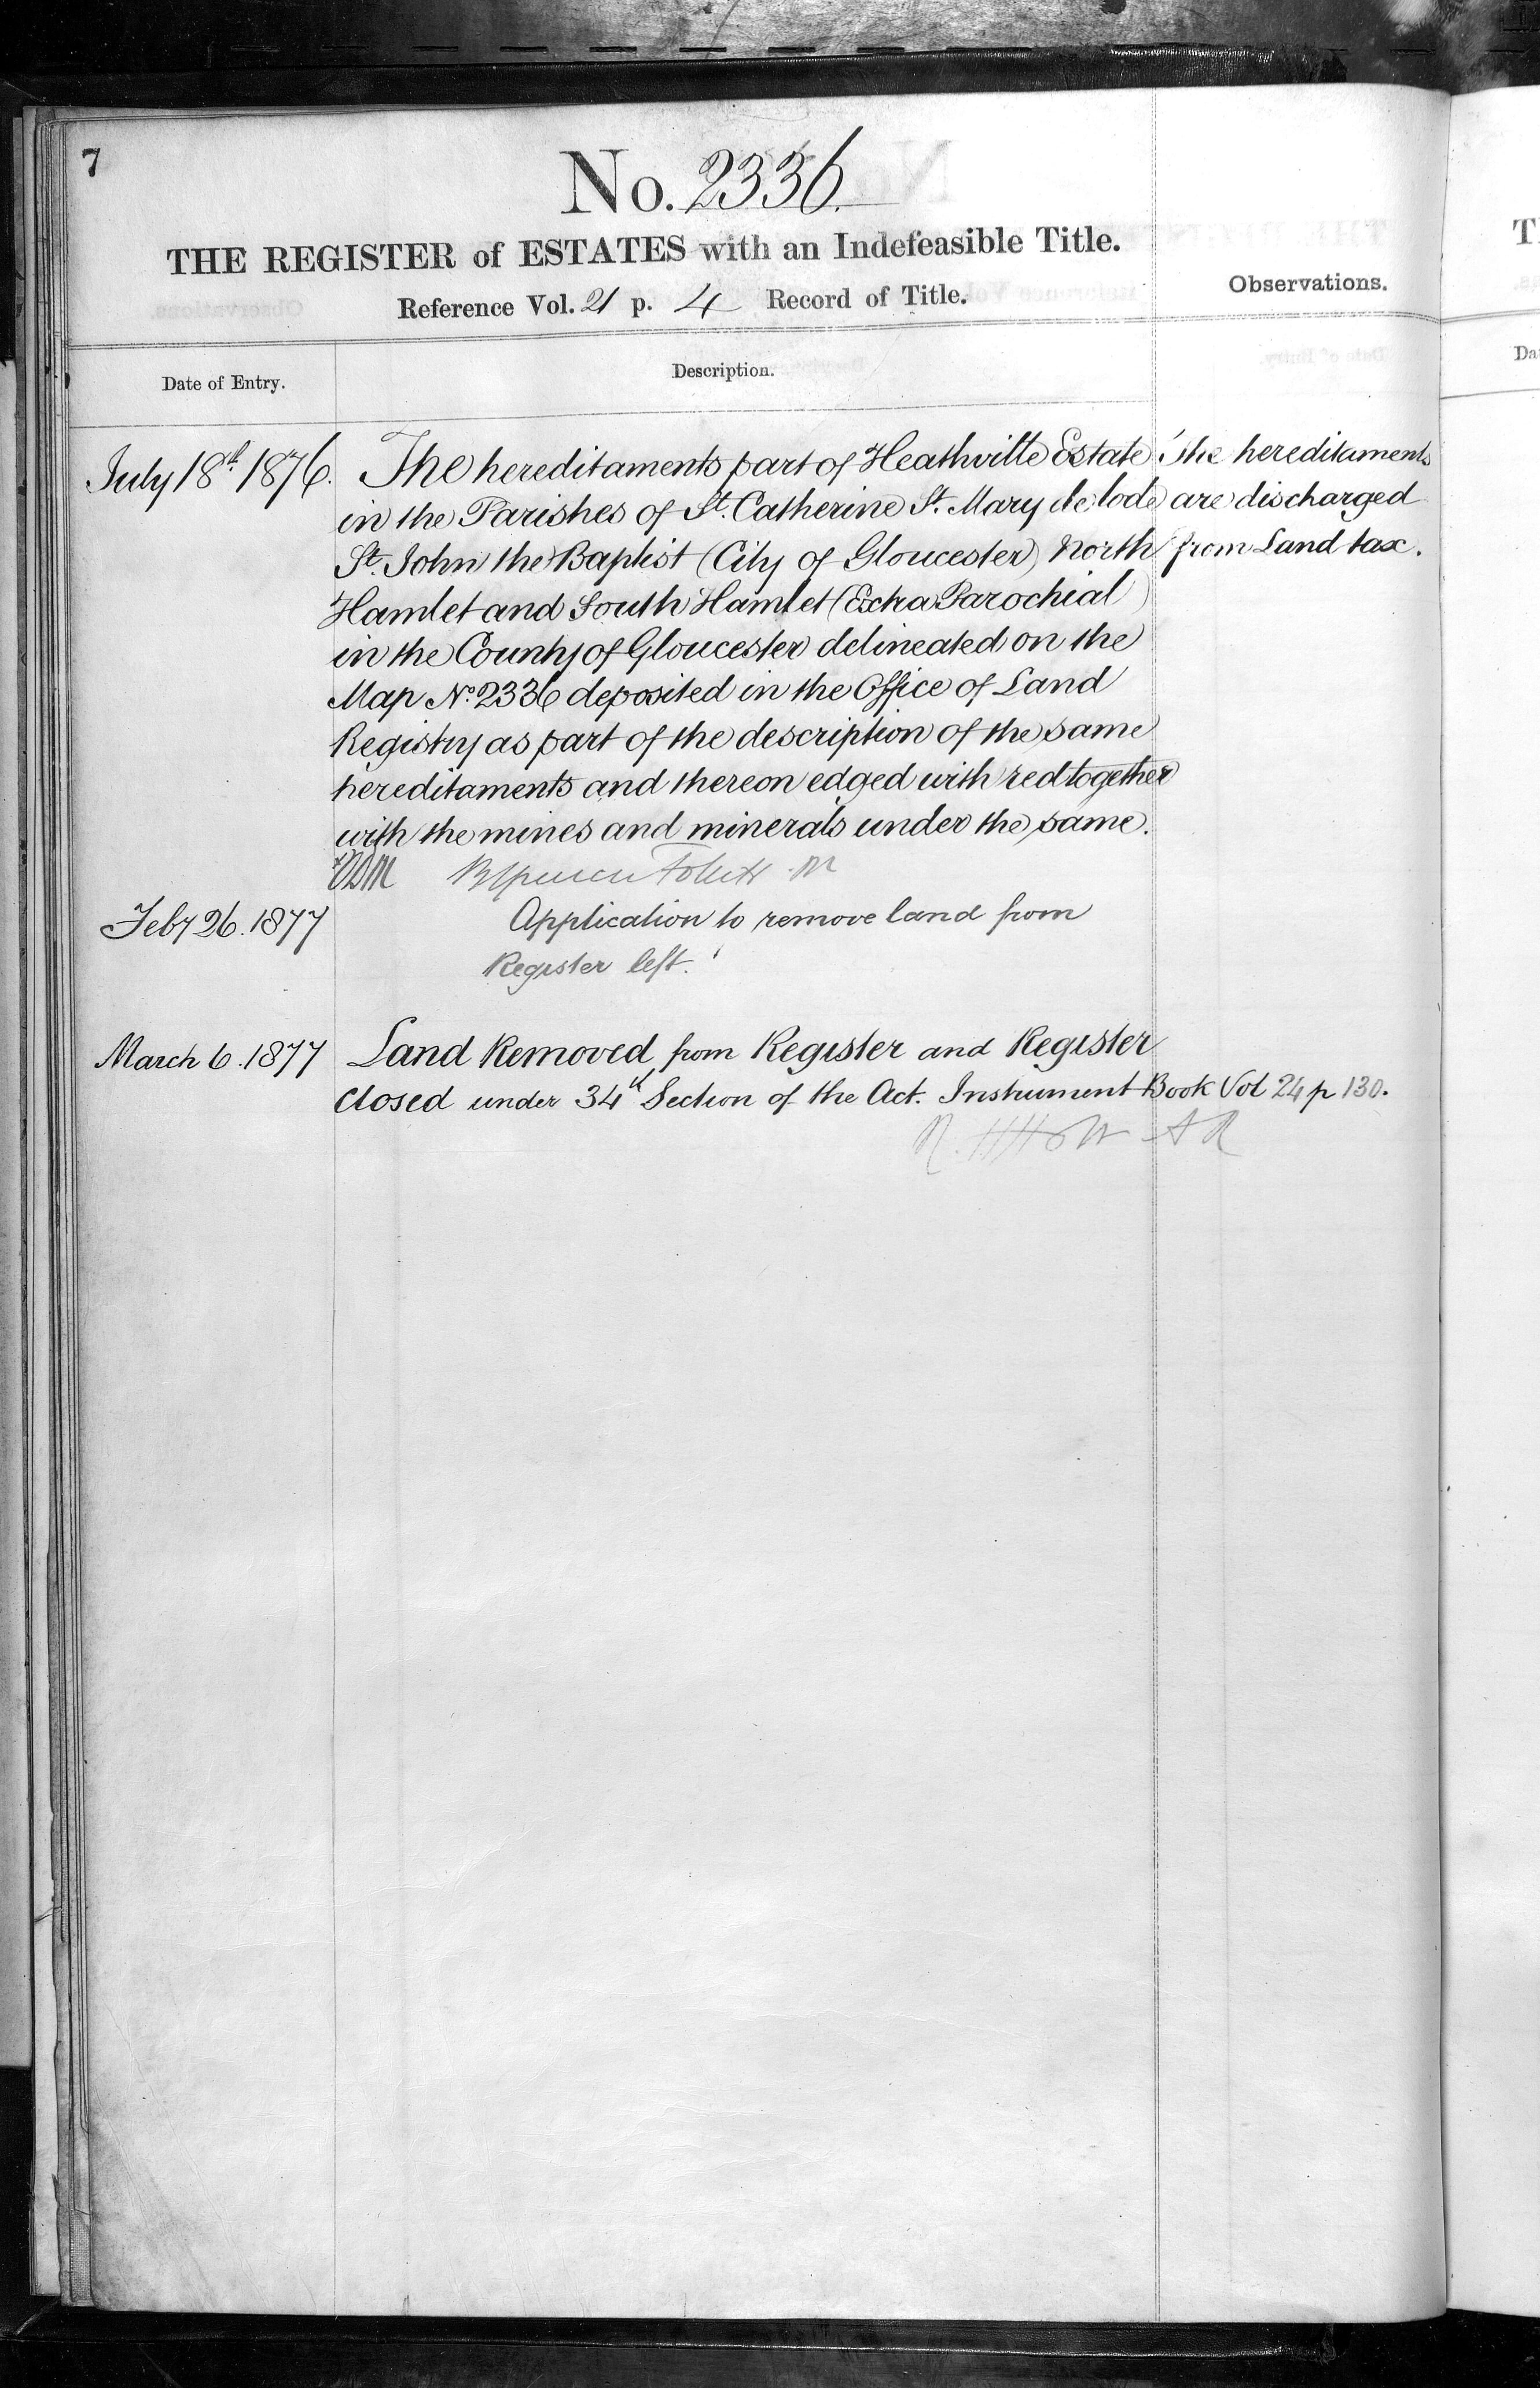 7
No. 2336.
THE REGISTER of ESTATES with an Indefeasible Title.
Reference Vol. 21 p. 4 Record of Title.
Observations.
Date of Entry.
Description.
July 18th 1876.
The hereditaments part of Heathville Estate
in the Parishes of St. Catherine St. Mary de lode
St. John the Baptist (City of Gloucester) North
Hamlet and South Hamlet (Extra Parochial)
in the County of Gloucester delineated on the
Map No. 2336 deposited in the Office of Land
Registry as part of the description of the same
hereditaments and thereon edged with red together
with the mines and minerals under the same.
The hereditaments
are discharged
from Land tax.
Feby 26. 1877
Application to remove land from
Register left.
March 6. 1877
Land Removed from Register and Register
closed under 34th Section of the Act. Instrument Book Vol 24 p 130.
T
Da